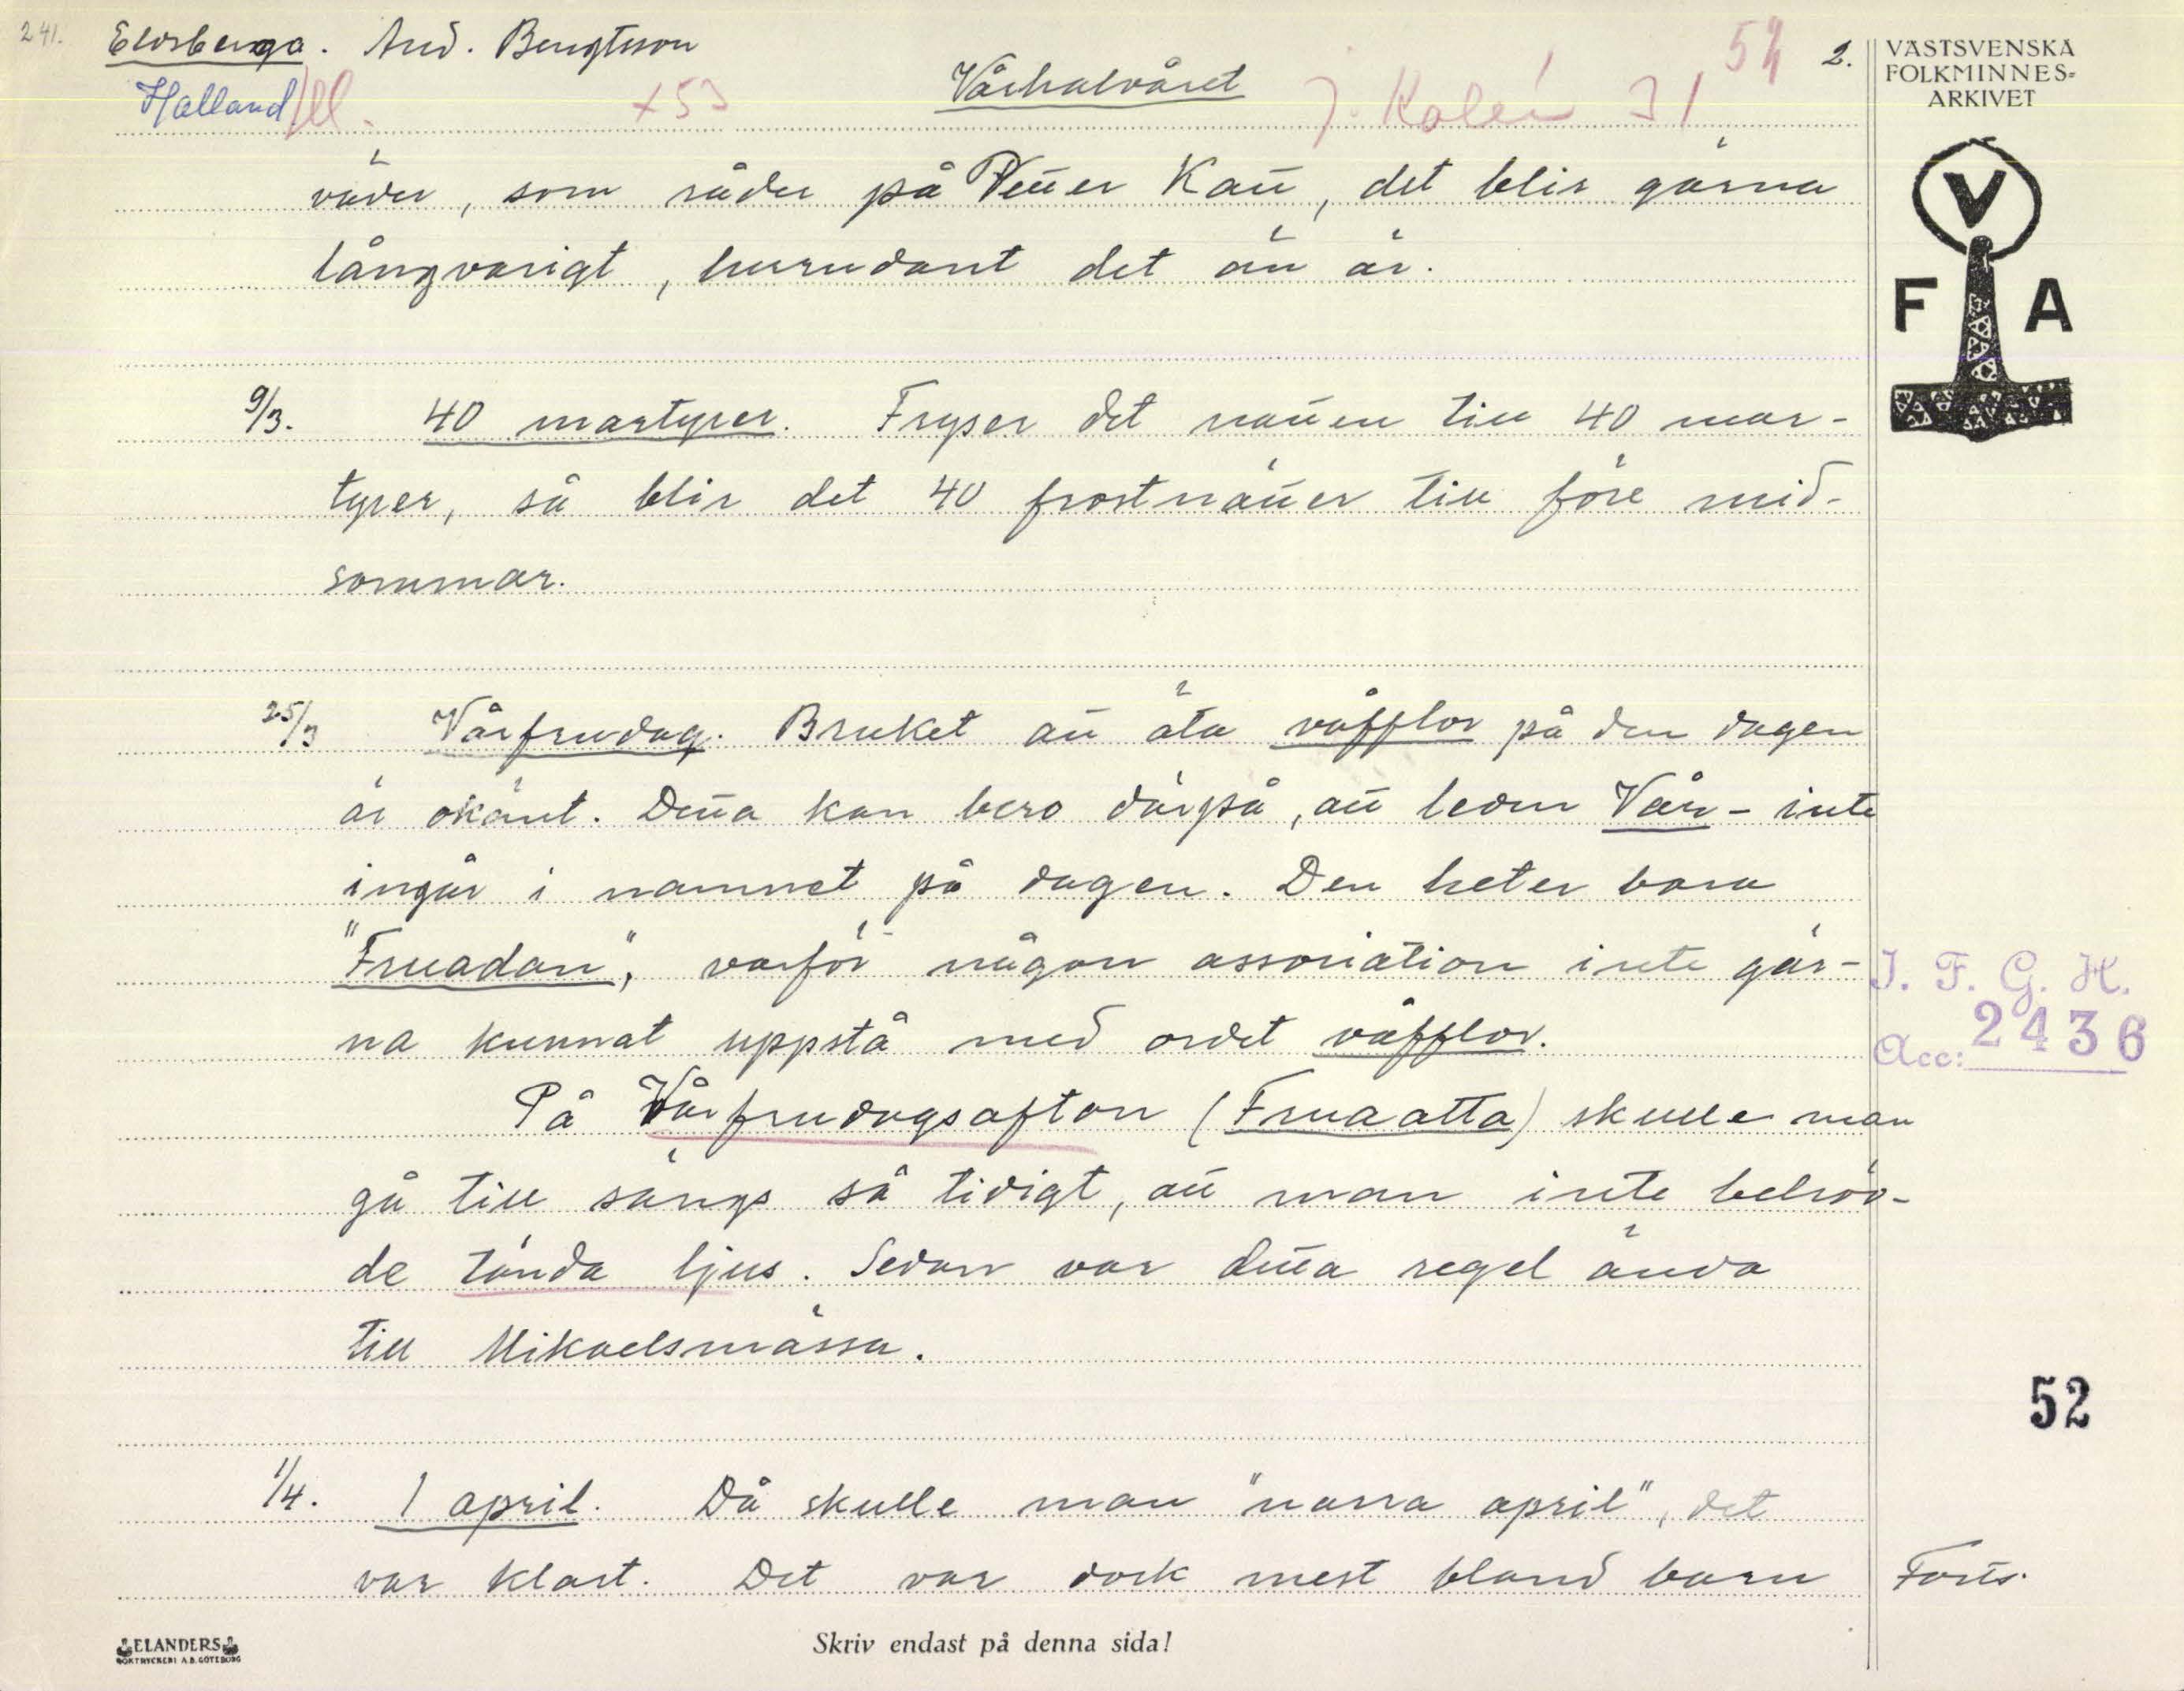 241. Eldsberga. And. Bengtsson
Vårhalvåret
52 2.
VÄSTSVENSKA
FOLKMINNES-
ARKIVET
Halland
+53
J. Kalén 31
väder, som råder på Petter Katt, det blir gärna
långvarigt, hurudant det än är.
V
F A
9/3. 40 martyrer. Fryser det natten till 40 mar-
tyrer, så blir det 40 frostnätter till före mid-
sommar.
25/3 Vårfrudag. Bruket att äta våfflor på den dagen
är okänt. Detta kan bero därpå, att leden Vår- inte
ingår i namnet på dagen. Den heter bara
"Fruadan", varför någon association inte gär-
na kunnat uppstå med ordet våfflor.
På Vårfrudagsafton (Fruaatta) skulle man
gå till sängs så tidigt, att man inte behöv-
de tända ljus. Sedan var detta regel ända
till Mikaelsmässa.
I. F. G. H.
Acc: 2436
52
1/4. 1 april. Då skulle man "narra april", det
var klart. Det var dock mest bland barn
Forts.
ELANDERS
BOKTRYCKERI A.B. GÖTEBORG
Skriv endast på denna sida!